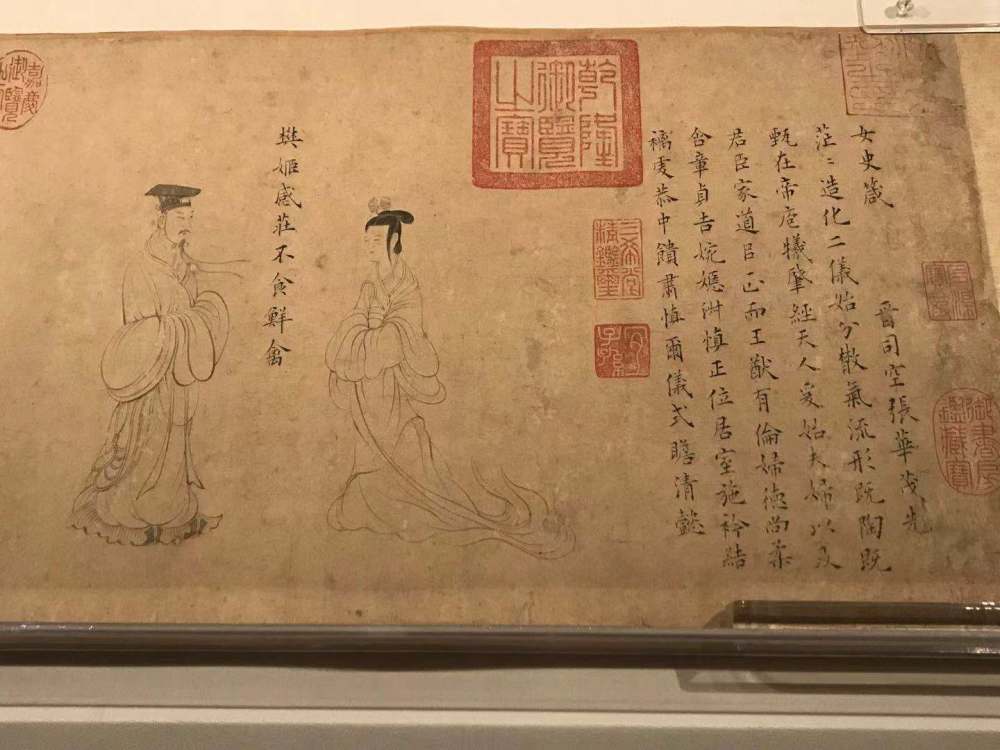 御書房
鑑藏寶
石渠
寶笈
女史箴
晉司空張華茂先
茫〻造化二儀始分散氣流形既陶既
甄在帝庖犧肇經天人爰始夫婦以及
君臣家道㠯正而王猷有倫婦德尚柔
含章貞吉婉嫕淑慎正位居室施衿結
褵虔恭中饋肅慎爾儀式瞻清懿
乾隆
御覽
之寶
三希堂
精鑑璽
宜
子孫
樊姬感莊不食鮮禽
嘉慶
御覽
之寶